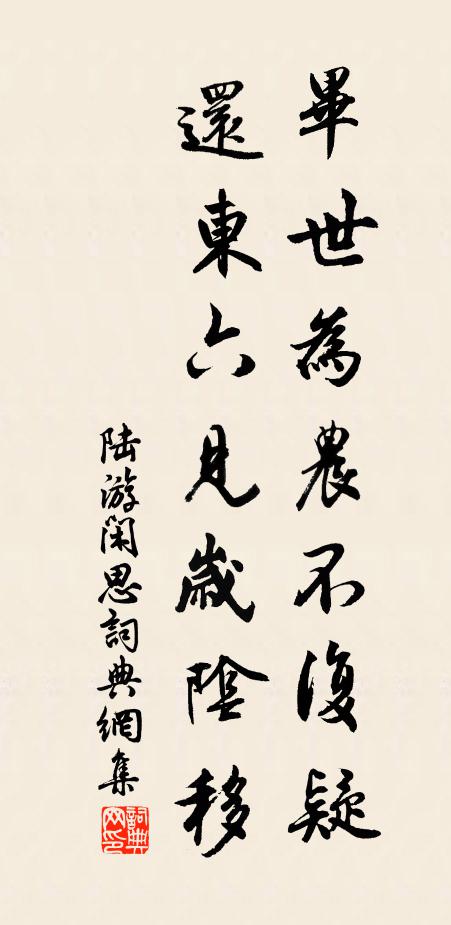 畢世為農不復疑
還東六見歲陰移
陆游閑思詞典網集
詞典网印